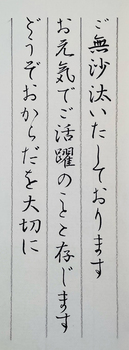 ご無沙汰いたしております
お元気でご活躍のことと存じます
どうぞおからだを大切に